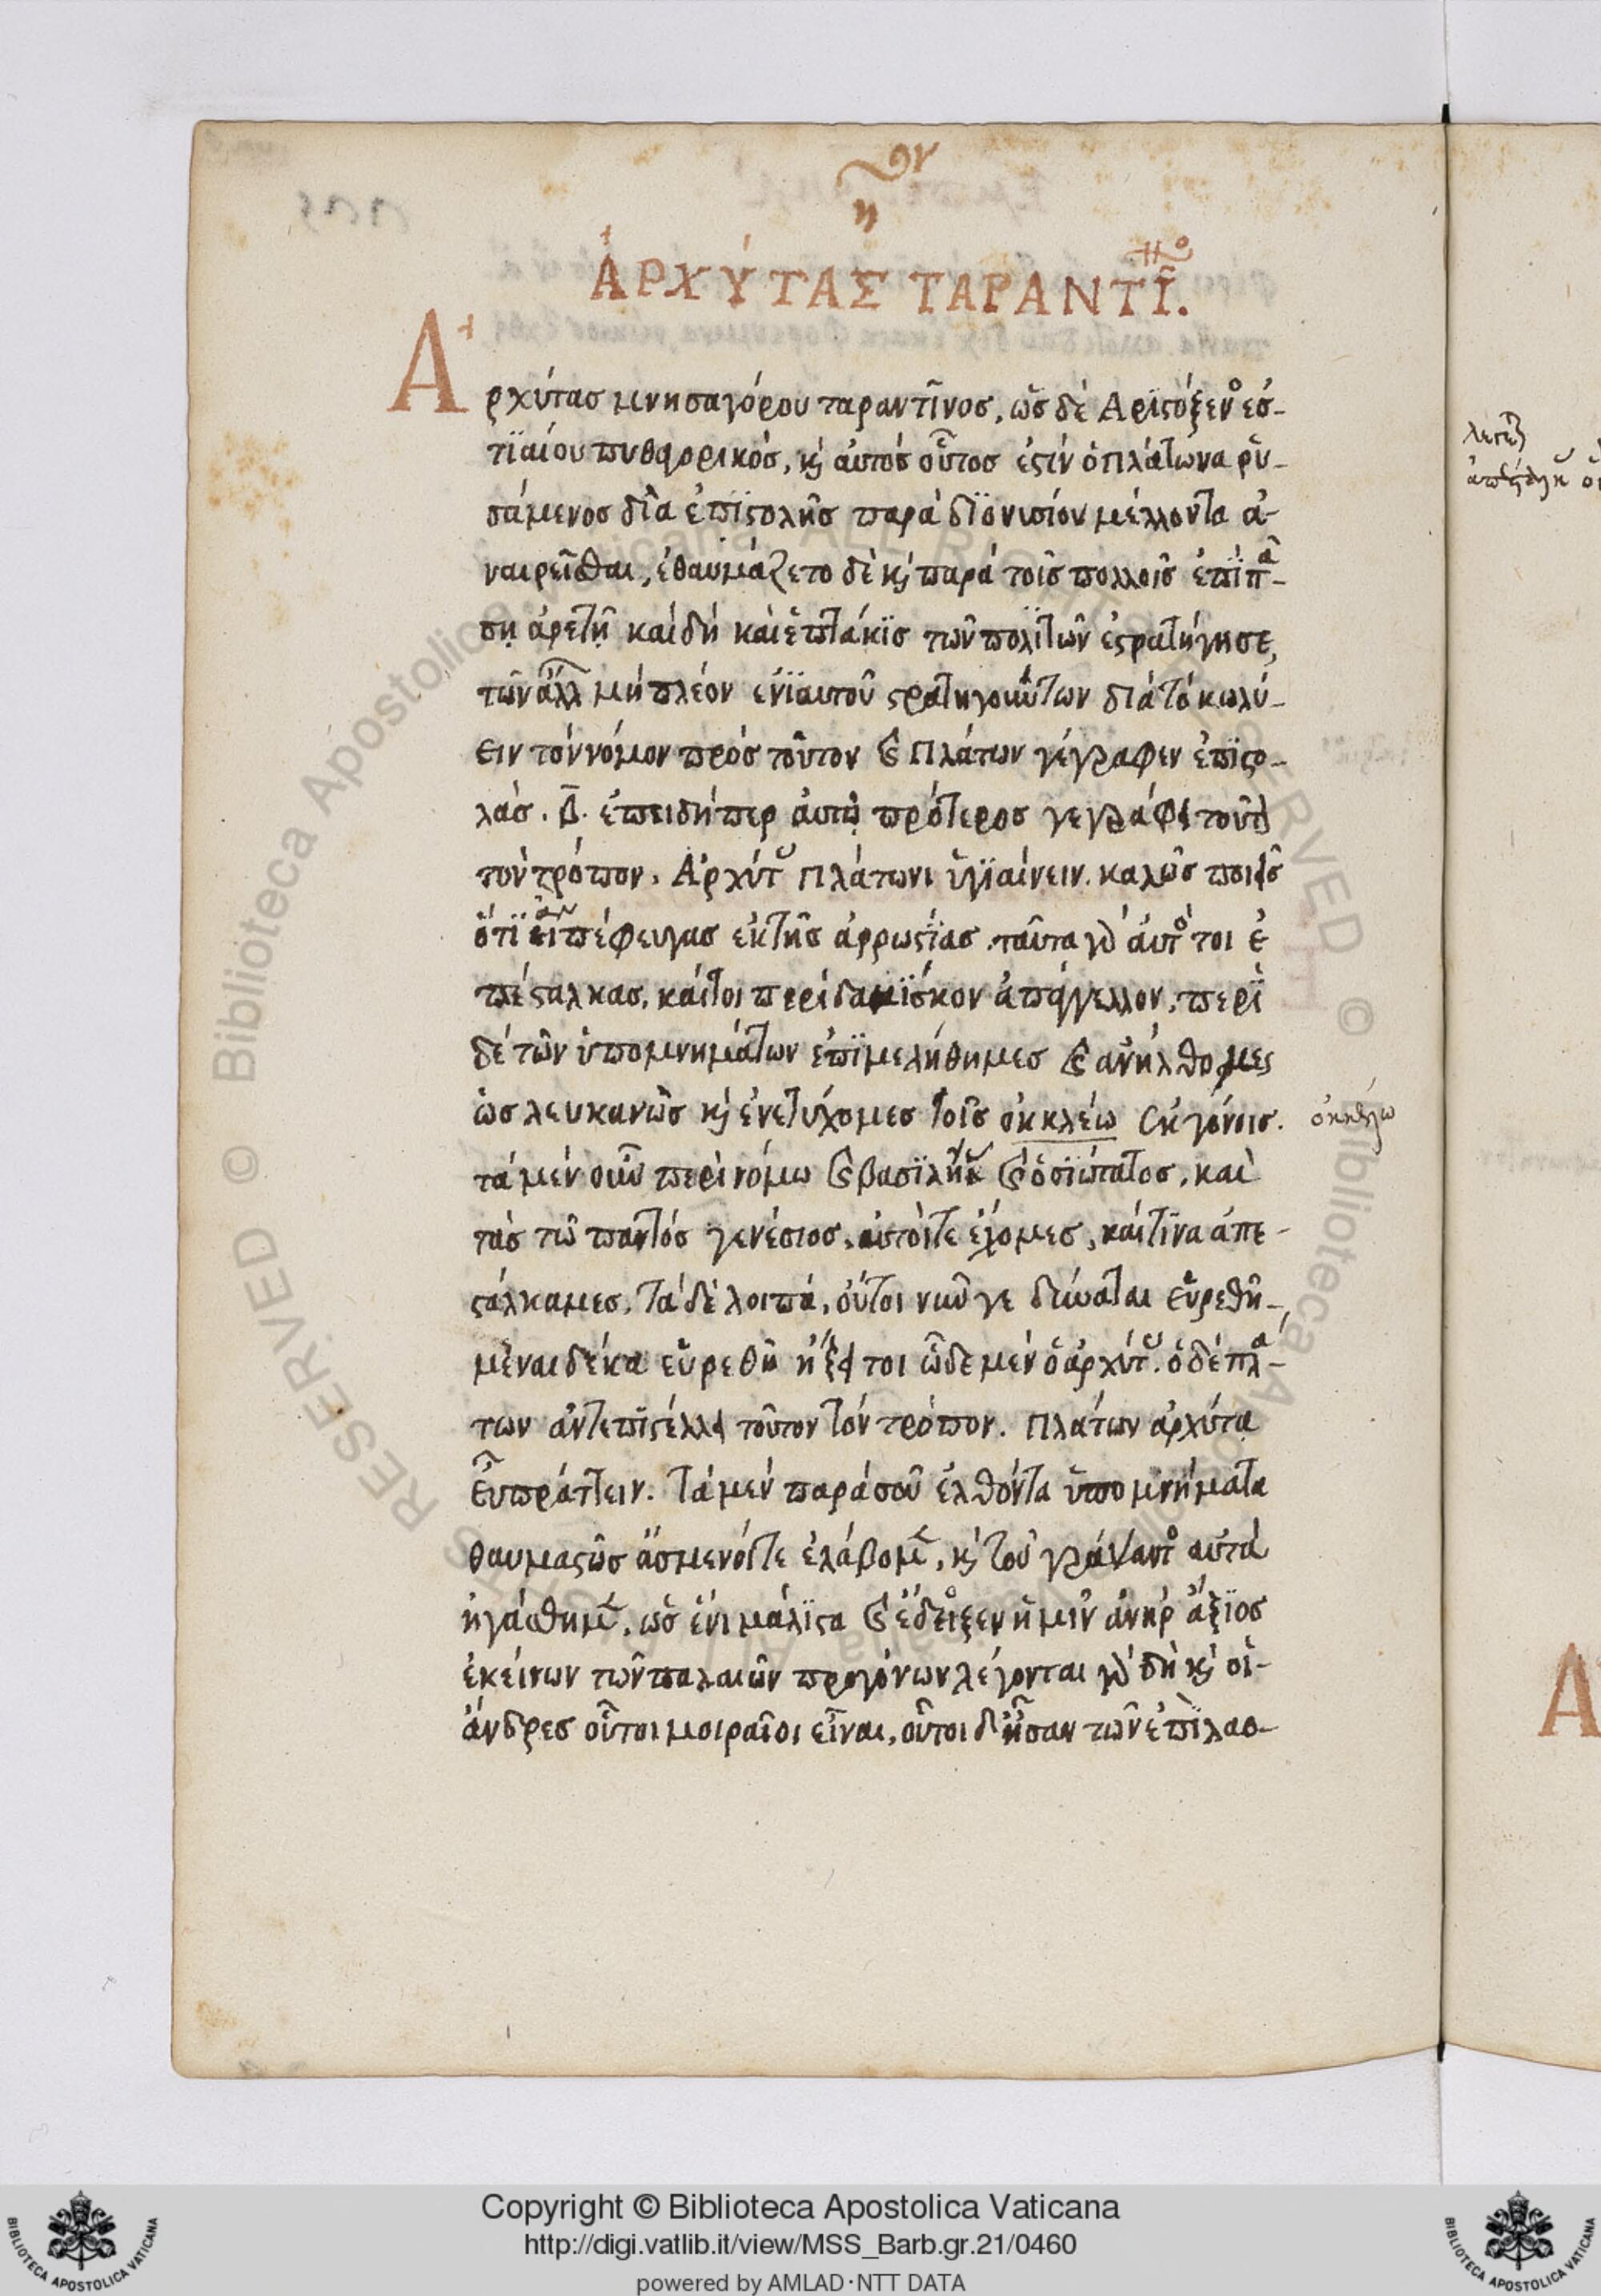 η
ἈΡΧΎΤΑΣ ΤΑΡΑΝΤῖ.
Α
ρχύτασ μνησαγόρου ταραντῖνοσ, ὡσ δὲ Αριστόξενο εσ-
τϊαίου πυθαγορικόσ, κ αυτόσ οὗτοσ ἐστίν ὁ πλάτωνα ρυ-
σάμενοσ διὰ ἐπϊστολῆσ παρά διονυσίου μέλλοντα ἀ-
ναιρεῖσθαι, ἐθαυμάζετο δὲ κ παρά τοῖσ πολλοῖσ ἐπϊ πα-
σῃ ἀρετῇ καί δή καὶ ἑπτάκϊσ τῶν πολϊτῶν ἐστρατήγησε,
τῶν ἄλλ μή πλέον ενϊαυτοῦ στρατηγούντων διά τό κωλύ-
ειν τόν νόμον πρόσ τοῦτον κ Πλάτων γέγραφεν ἐπϊστο-
λάσ. β. ἐπειδήπερ ἀυτῷ πρότεροσ γεγράφει τοῦτ
τον τρόπον. Αρχύτ Πλάτωνι ὑγϊαίνειν. καλῶσ ποιεῖσ
ὅτϊ πέφευγασ εκ τῆσ ἀρρωστϊασ. ταῦτα γ ἀυτο τοι ἐ
πέσταλκασ, καίτοι περί δαμϊσκον ἀπάγγελλον, περϊ
δέ τῶν ὑπομνημάτων ἐπϊμελήθημεσ κ ανήλθομες
ὡσ λευκανῶσ κ ἐνετυχομεσ τοῖσ οκκλέιω εκγόνοισ.
οκκέλω
τά μέν οὖν περὶ νόμω κ βασϊλη κ ὁσϊώτατοσ, καὶ
τᾶσ τῶ παντόσ γενέσιοσ, αυτοίτε έχομεσ, καί τϊνα άπε-
στάλκαμεσ, τά δὲ λοιπά, ούτοι νῦν γε δύναται εὑρεθη-
μέναι δέκα εὑρεθῆ ἥξει τοι ὧδε μέν ὁ αρχύτ. ὁ δέ πλά-
των αντεπϊστέλλει τοῦτον τόν τρόπον. Πλάτων αρχύτα
Ευπράττειν. Τά μέν παρά σοῦ ἐλθόντα ὑπομνήματα
θαυμαστῶσ ἄσμενοίτε ἐλάβομ, κ τοῦ γράψαντ αυτά
ἠγάσθημ, ὡσ ἐνι μάλϊστα κ έδειξεν ἡμῖν άνηρ άξϊοσ
ἐκείνων τῶν παλαιῶν προγόνων λέγονται γ δὴ κ οἱ-
άνδρεσ οὗτοι μοιραῖοι εἶναι, οὗτοι δ ἦσαν τῶν ἐπϊ λαο-
Copyright © Biblioteca Apostolica Vaticana
http://digi.vatlib.it/view/MSS_Barb.gr.21/0460
powered by AMLAD·NTT DATA